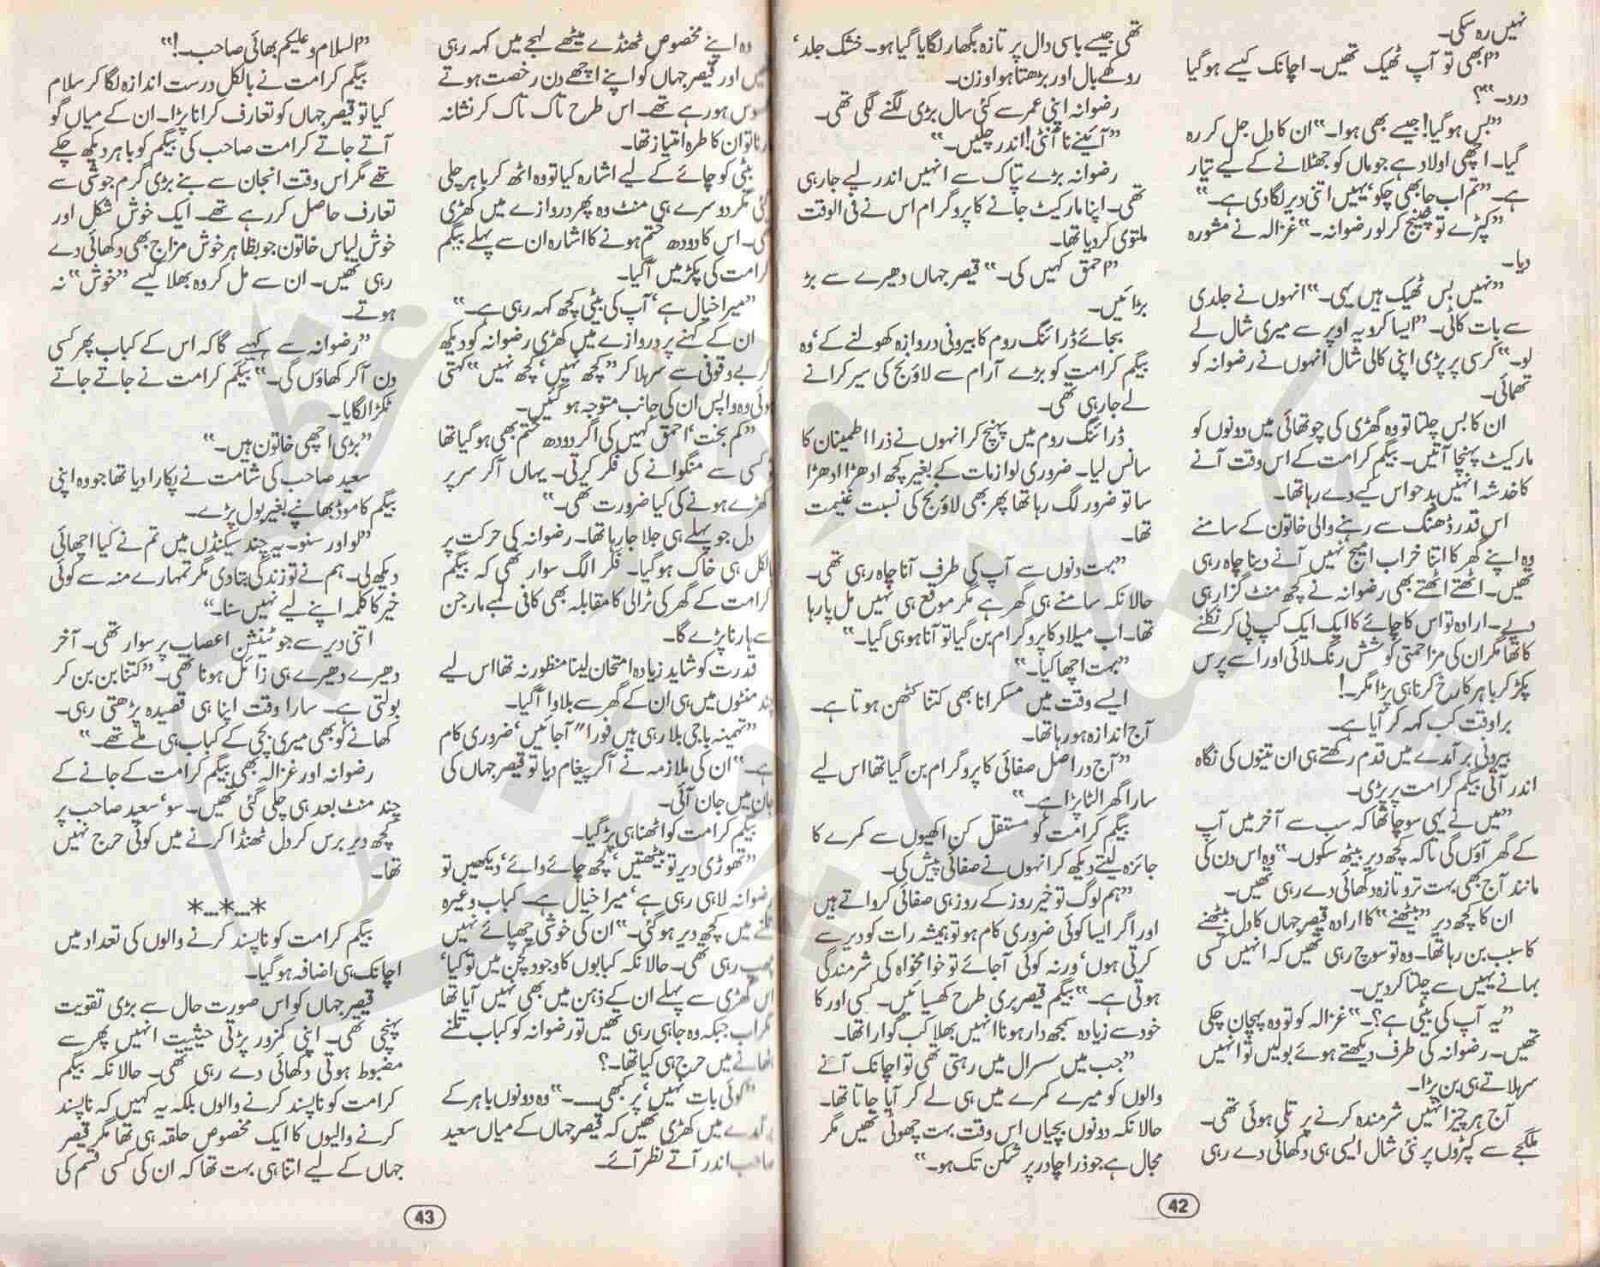 نہیں رہ سکی۔
”ابھی تو آپ ٹھیک تھیں۔ اچانک کیسے ہو گیا
درد۔“؟
”بس ہو گیا! جیسے بھی ہوا۔“ ان کا دل جل کر رہ
گیا۔ اچھی اولاد ہے جو ماں کو جھٹلانے کے لیے تیار
ہے۔ ”تم اب جا بھی چکو‘ یہیں اتنی دیر لگا دی ہے۔“
”کپڑے تو چینج کر لو رضوانہ۔“ غزالہ نے مشورہ
دیا۔
”نہیں بس ٹھیک ہیں یہی۔“ انہوں نے جلدی
سے بات کاٹی۔ ”ایسا کرو یہ اوپر سے میری شال لے
لو۔“ کرسی پر پڑی اپنی کالی شال انہوں نے رضوانہ کو
تھمائی۔
ان کا بس چلتا تو وہ گھڑی کی چوتھائی میں دونوں کو
مارکیٹ پہنچا آتیں۔ بیگم کرامت کے اس وقت آنے
کا خدشہ انہیں بدحواس کیے دے رہا تھا۔
اس قدر ڈھنگ سے رہنے والی خاتون کے سامنے
وہ اپنے گھر کا اتنا خراب امیج نہیں آنے دینا چاہ رہی
تھیں۔ اٹھتے اٹھتے بھی رضوانہ نے کچھ منٹ گزار ہی
دیے۔ ارادہ تو اس کا چائے کا ایک ایک کپ پی کر نکلنے
کا تھا مگر ان کی مزاحمتی کوشش رنگ لائی اور اسے پرس
پکڑ کر باہر کا رخ کرنا ہی پڑا مگر۔!
برا وقت کب کہہ کر آیا ہے۔
بیرونی برآمدے میں قدم رکھتے ہی ان تینوں کی نگاہ
اندر آتی بیگم کرامت پر پڑی۔
”میں نے یہی سوچا تھا کہ سب سے آخر میں آپ
کے گھر آؤں گی تاکہ کچھ دیر بیٹھ سکوں۔“ وہ اس دن کی
مانند آج بھی بہت تر و تازہ دکھائی دے رہی تھیں۔
ان کا کچھ دیر ”بیٹھنے“ کا ارادہ قیصر جہاں کا دل بیٹھنے
کا سبب بن رہا تھا۔ وہ تو سوچ رہی تھیں کہ انہیں کسی
بہانے یہیں سے چلتا کر دیں۔
”یہ آپ کی بیٹی ہے؟۔“ غزالہ کو تو وہ پہچان چکی
تھیں۔ رضوانہ کی طرف دیکھتے ہوئے بولیں تو انہیں
سر ہلاتے ہی بن پڑا۔
آج ہر چیز انہیں شرمندہ کرنے پر تلی ہوئی تھی۔
ملگجے سے کپڑوں پر نئی شال ایسی ہی دکھائی دے رہی
تھی جیسے باسی دال پر تازہ بگھار لگایا گیا ہو۔ خشک جلد‘
روکھے بال اور بڑھتا ہوا وزن۔
رضوانہ اپنی عمر سے کئی سال بڑی لگنے لگی تھی۔
”آئیے نا آنٹی! اندر چلیں۔“
رضوانہ بڑے تپاک سے انہیں اندر لیے جا رہی
تھی۔ اپنا مارکیٹ جانے کا پروگرام اس نے فی الوقت
ملتوی کر دیا تھا۔
”احمق کہیں کی۔“ قیصر جہاں دھیرے سے بڑ
بڑائیں۔
بجائے ڈرائنگ روم کا بیرونی دروازہ کھولنے کے‘ وہ
بیگم کرامت کو بڑے آرام سے لاؤنج کی سیر کرانے
لے جا رہی تھی۔
ڈرائنگ روم میں پہنچ کر انہوں نے ذرا اطمینان کا
سانس لیا۔ ضروری لوازمات کے بغیر کچھ ادھڑا ادھڑا
سا تو ضرور لگ رہا تھا پھر بھی لاؤنج کی نسبت غنیمت
تھا۔
”بہت دنوں سے آپ کی طرف آنا چاہ رہی تھی۔
حالانکہ سامنے ہی گھر ہے مگر موقع ہی نہیں مل پا رہا
تھا۔ اب میلاد کا پروگرام بن گیا تو آنا ہو ہی گیا۔“
”بہت اچھا کیا۔“
ایسے وقت میں مسکرانا بھی کتنا کٹھن ہوتا ہے۔
آج اندازہ ہو رہا تھا۔
”آج دراصل صفائی کا پروگرام بن گیا تھا اس لیے
سارا گھر الٹا پڑا ہے۔“
بیگم کرامت کو مستقل کن اکھیوں سے کمرے کا
جائزہ لیتے دیکھ کر انہوں نے صفائی پیش کی۔
”ہم لوگ تو خیر روز کے روز ہی صفائی کرواتے ہیں
اور اگر ایسا کوئی ضروری کام ہو تو ہمیشہ رات کو دیر سے
کرتی ہوں‘ ورنہ کوئی آ جائے تو خوامخواہ کی شرمندگی
ہوتی ہے۔“ بیگم قیصر بری طرح کھسیائیں۔ کسی اور کا
خود سے زیادہ سمجھ دار ہونا انہیں بھلا کب گوارا تھا۔
”جب میں سسرال میں رہتی تھی تو اچانک آنے
والوں کو میرے کمرے میں ہی لے کر آیا جاتا تھا۔
حالانکہ دونوں بچیاں اس وقت بہت چھوٹی تھیں مگر
مجال ہے جو ذرا چادر پر شکن تک ہو۔“
42
وہ اپنے مخصوص ٹھنڈے میٹھے لہجے میں کہہ رہی
اور قیصر جہاں کو اپنے اچھے دن رخصت ہوتے
ہو رہے تھے۔ اس طرح تاک تاک کر نشانہ
تو ان کا طرہ امتیاز تھا۔
بیٹی کو چائے کے لیے اشارہ کیا تو وہ اٹھ کر باہر چلی
مگر دوسرے ہی منٹ وہ پھر دروازے میں کھڑی
اس کا دودھ ختم ہونے کا اشارہ ان سے پہلے بیگم
کرامت کی پکڑ میں آ گیا۔
”میرا خیال ہے‘ آپ کی بیٹی کچھ کہہ رہی ہے۔“
ان کے کہنے پر دروازے میں کھڑی رضوانہ کو دیکھ
کر بے وقوفی سے سر ہلا کر ”کچھ نہیں‘ کچھ نہیں“ کہتی
ہوئی وہ واپس ان کی جانب متوجہ ہو گئیں۔
”کم بخت‘ احمق کہیں کی اگر دودھ ختم بھی ہو گیا تھا
تو کسی سے منگوانے کی فکر کرتی۔ یہاں آ کر سر پر
کھڑے ہونے کی کیا ضرورت تھی۔“
دل جو پہلے ہی جلا جا رہا تھا۔ رضوانہ کی حرکت پر
بالکل ہی خاک ہو گیا۔ فکر الگ سوار تھی کہ بیگم
کرامت کے گھر کی ٹرالی کا مقابلہ بھی کافی لمبے مارجن
سے ہارنا پڑے گا۔
قدرت کو شاید زیادہ امتحان لینا منظور نہ تھا اس لیے
چند منٹوں میں ہی ان کے گھر سے بلاوا آ گیا۔
”تہمینہ باجی بلا رہی ہیں فوراً آ جائیں‘ ضروری کام
ہے۔“ ان کی ملازمہ نے آ کر پیغام دیا تو قیصر جہاں کی
جان میں جان آئی۔
بیگم کرامت کو اٹھنا ہی پڑ گیا۔
”تھوڑی دیر تو بیٹھتیں‘ کچھ چائے وائے‘ دیکھیں تو
رضوانہ لا ہی رہی ہے‘ میرا خیال ہے۔ کباب وغیرہ
تلنے میں کچھ دیر ہو گئی۔“ ان کی خوشی چھپائے نہیں
چھپ رہی تھی۔ حالانکہ کبابوں کا وجود کچن میں تو کیا‘
اس گھڑی سے پہلے ان کے ذہن میں بھی نہیں آیا تھا
مگر اب جبکہ وہ جا ہی رہی تھیں تو رضوانہ کو کباب تلنے
بٹھانے میں حرج ہی کیا تھا۔؟
”کوئی بات نہیں‘ پھر کبھی۔۔۔“ وہ دونوں باہر کے
برآمدے میں کھڑی تھیں کہ قیصر جہاں کے میاں سعید
صاحب اندر آتے نظر آئے۔
”السلام و علیکم بھائی صاحب۔!“
بیگم کرامت نے بالکل درست اندازہ لگا کر سلام
کیا تو قیصر جہاں کو تعارف کرانا پڑا۔ ان کے میاں گو
آتے جاتے کرامت صاحب کی بیگم کو باہر دیکھ چکے
تھے مگر اس وقت انجان سے بنے بڑی گرم جوشی سے
تعارف حاصل کر رہے تھے۔ ایک خوش شکل اور
خوش لباس خاتون جو بظاہر خوش مزاج بھی دکھائی دے
رہی تھیں۔ ان سے مل کر وہ بھلا کیسے ”خوش“ نہ
ہوتے۔
”رضوانہ سے کہیے گا کہ اس کے کباب پھر کسی
دن آ کر کھاؤں گی۔“ بیگم کرامت نے جاتے جاتے
ٹکڑا لگایا۔
”بڑی اچھی خاتون ہیں۔“
سعید صاحب کی شامت نے پکارا دیا تھا جو وہ اپنی
بیگم کا موڈ بھانپے بغیر بول پڑے۔
”لو اور سنو۔ یہ چند سیکنڈوں میں تم نے کیا اچھائی
دیکھ لی۔ ہم نے تو زندگی بتا دی مگر تمہارے منہ سے کوئی
خیر کا کلمہ اپنے لیے نہیں سنا۔“
اتنی دیر سے جو ٹینشن اعصاب پر سوار تھی۔ آخر
دھیرے دھیرے ہی زائل ہونا تھی۔ ”کتنا بن بن کر
بولتی ہے۔ سارا وقت اپنا ہی قصیدہ پڑھتی رہی۔
کھانے کو بھی میری بچی کے کباب ہی ملے تھے۔“
رضوانہ اور غزالہ بھی بیگم کرامت کے جانے کے
چند منٹ بعد ہی چلی گئی تھیں۔ سو‘ سعید صاحب پر
کچھ دیر برس کر دل ٹھنڈا کرنے میں کوئی حرج نہیں
تھا۔
*...*...*
بیگم کرامت کو ناپسند کرنے والوں کی تعداد میں
اچانک ہی اضافہ ہو گیا۔
قیصر جہاں کو اس صورت حال سے بڑی تقویت
پہنچی تھی۔ اپنی کمزور پڑتی حیثیت انہیں پھر سے
مضبوط ہوتی دکھائی دے رہی تھی۔ حالانکہ بیگم
کرامت کو ناپسند کرنے والوں بلکہ یہ کہیں کہ ناپسند
کرنے والیوں کا ایک مخصوص حلقہ ہی تھا مگر قیصر
جہاں کے لیے اتنا ہی بہت تھا کہ ان کی کسی قسم کی
43